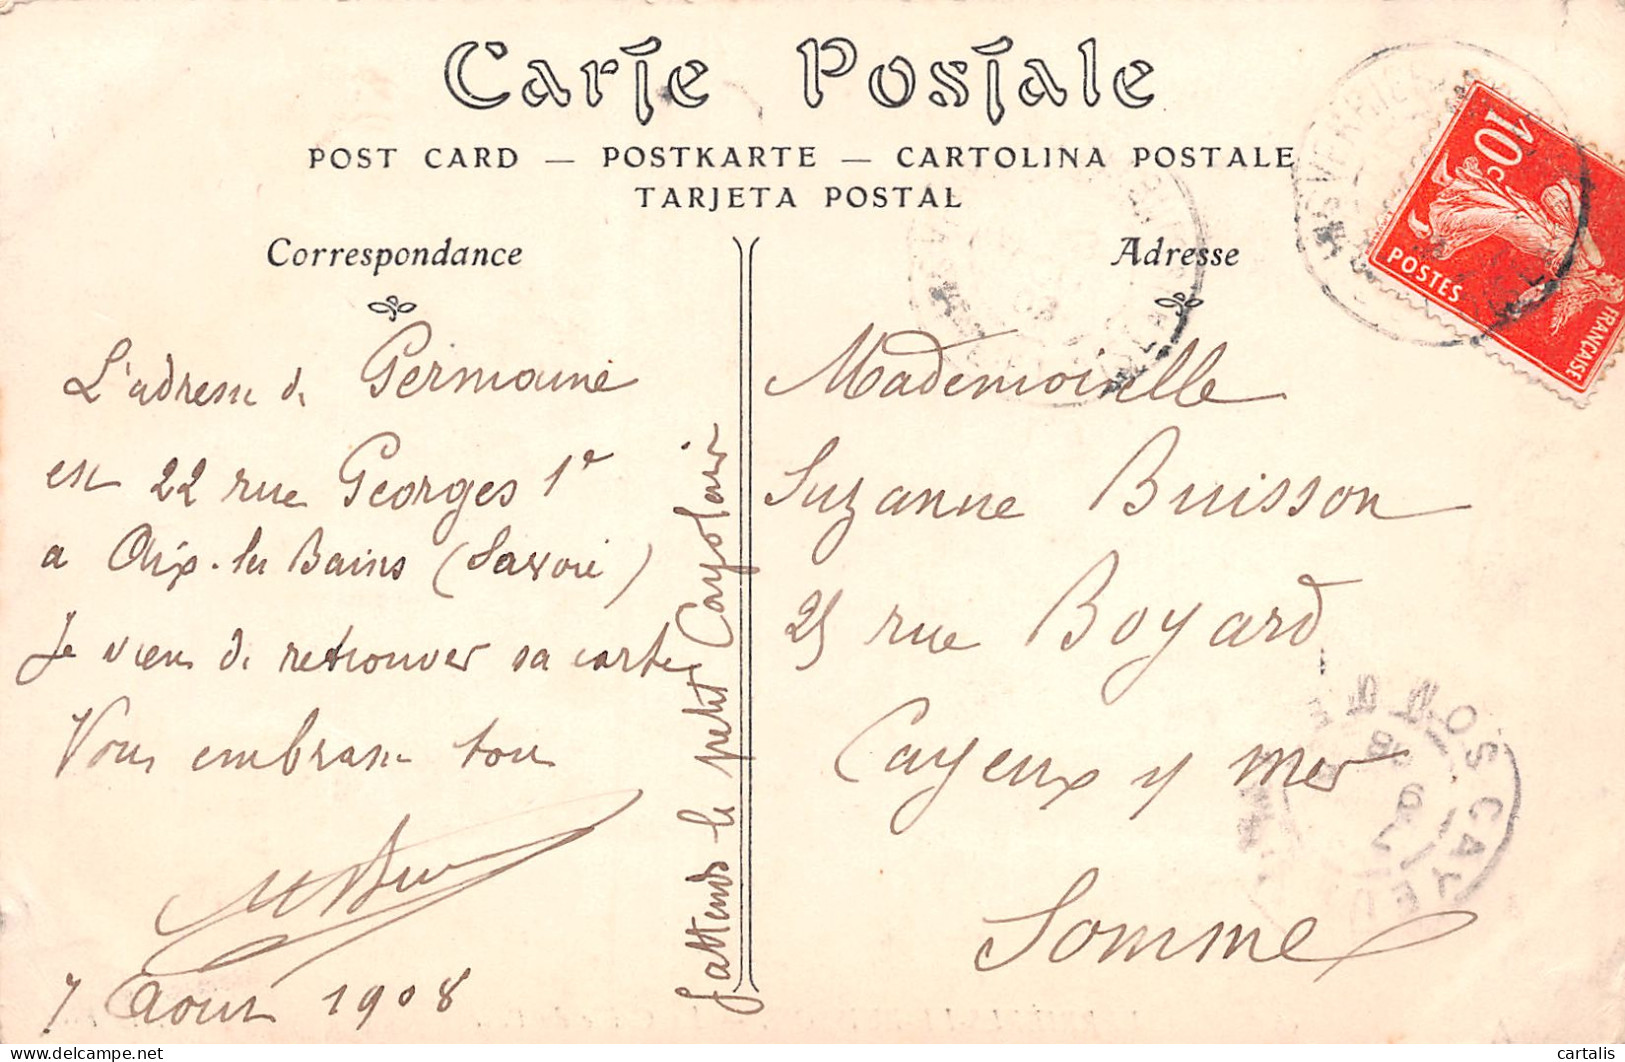 Carte Postale
POST CARD — POSTKARTE — CARTOLINA POSTALE
TARJETA POSTAL
Correspondance
Adresse
10c
POSTES
FRANÇAISE
L'adresse de Germaine
est 22 rue Georges 1er
a Aix-les Bains (Savoie)
Je viens de retrouver sa carte
Vous embrasse tous
7 Aout 1908
J'attends le petit Cayolais
Mademoiselle
Suzanne Buisson
25 rue Boyard
Cayeux s/ mer
Somme
CAYEUX
SOMME
cartalis